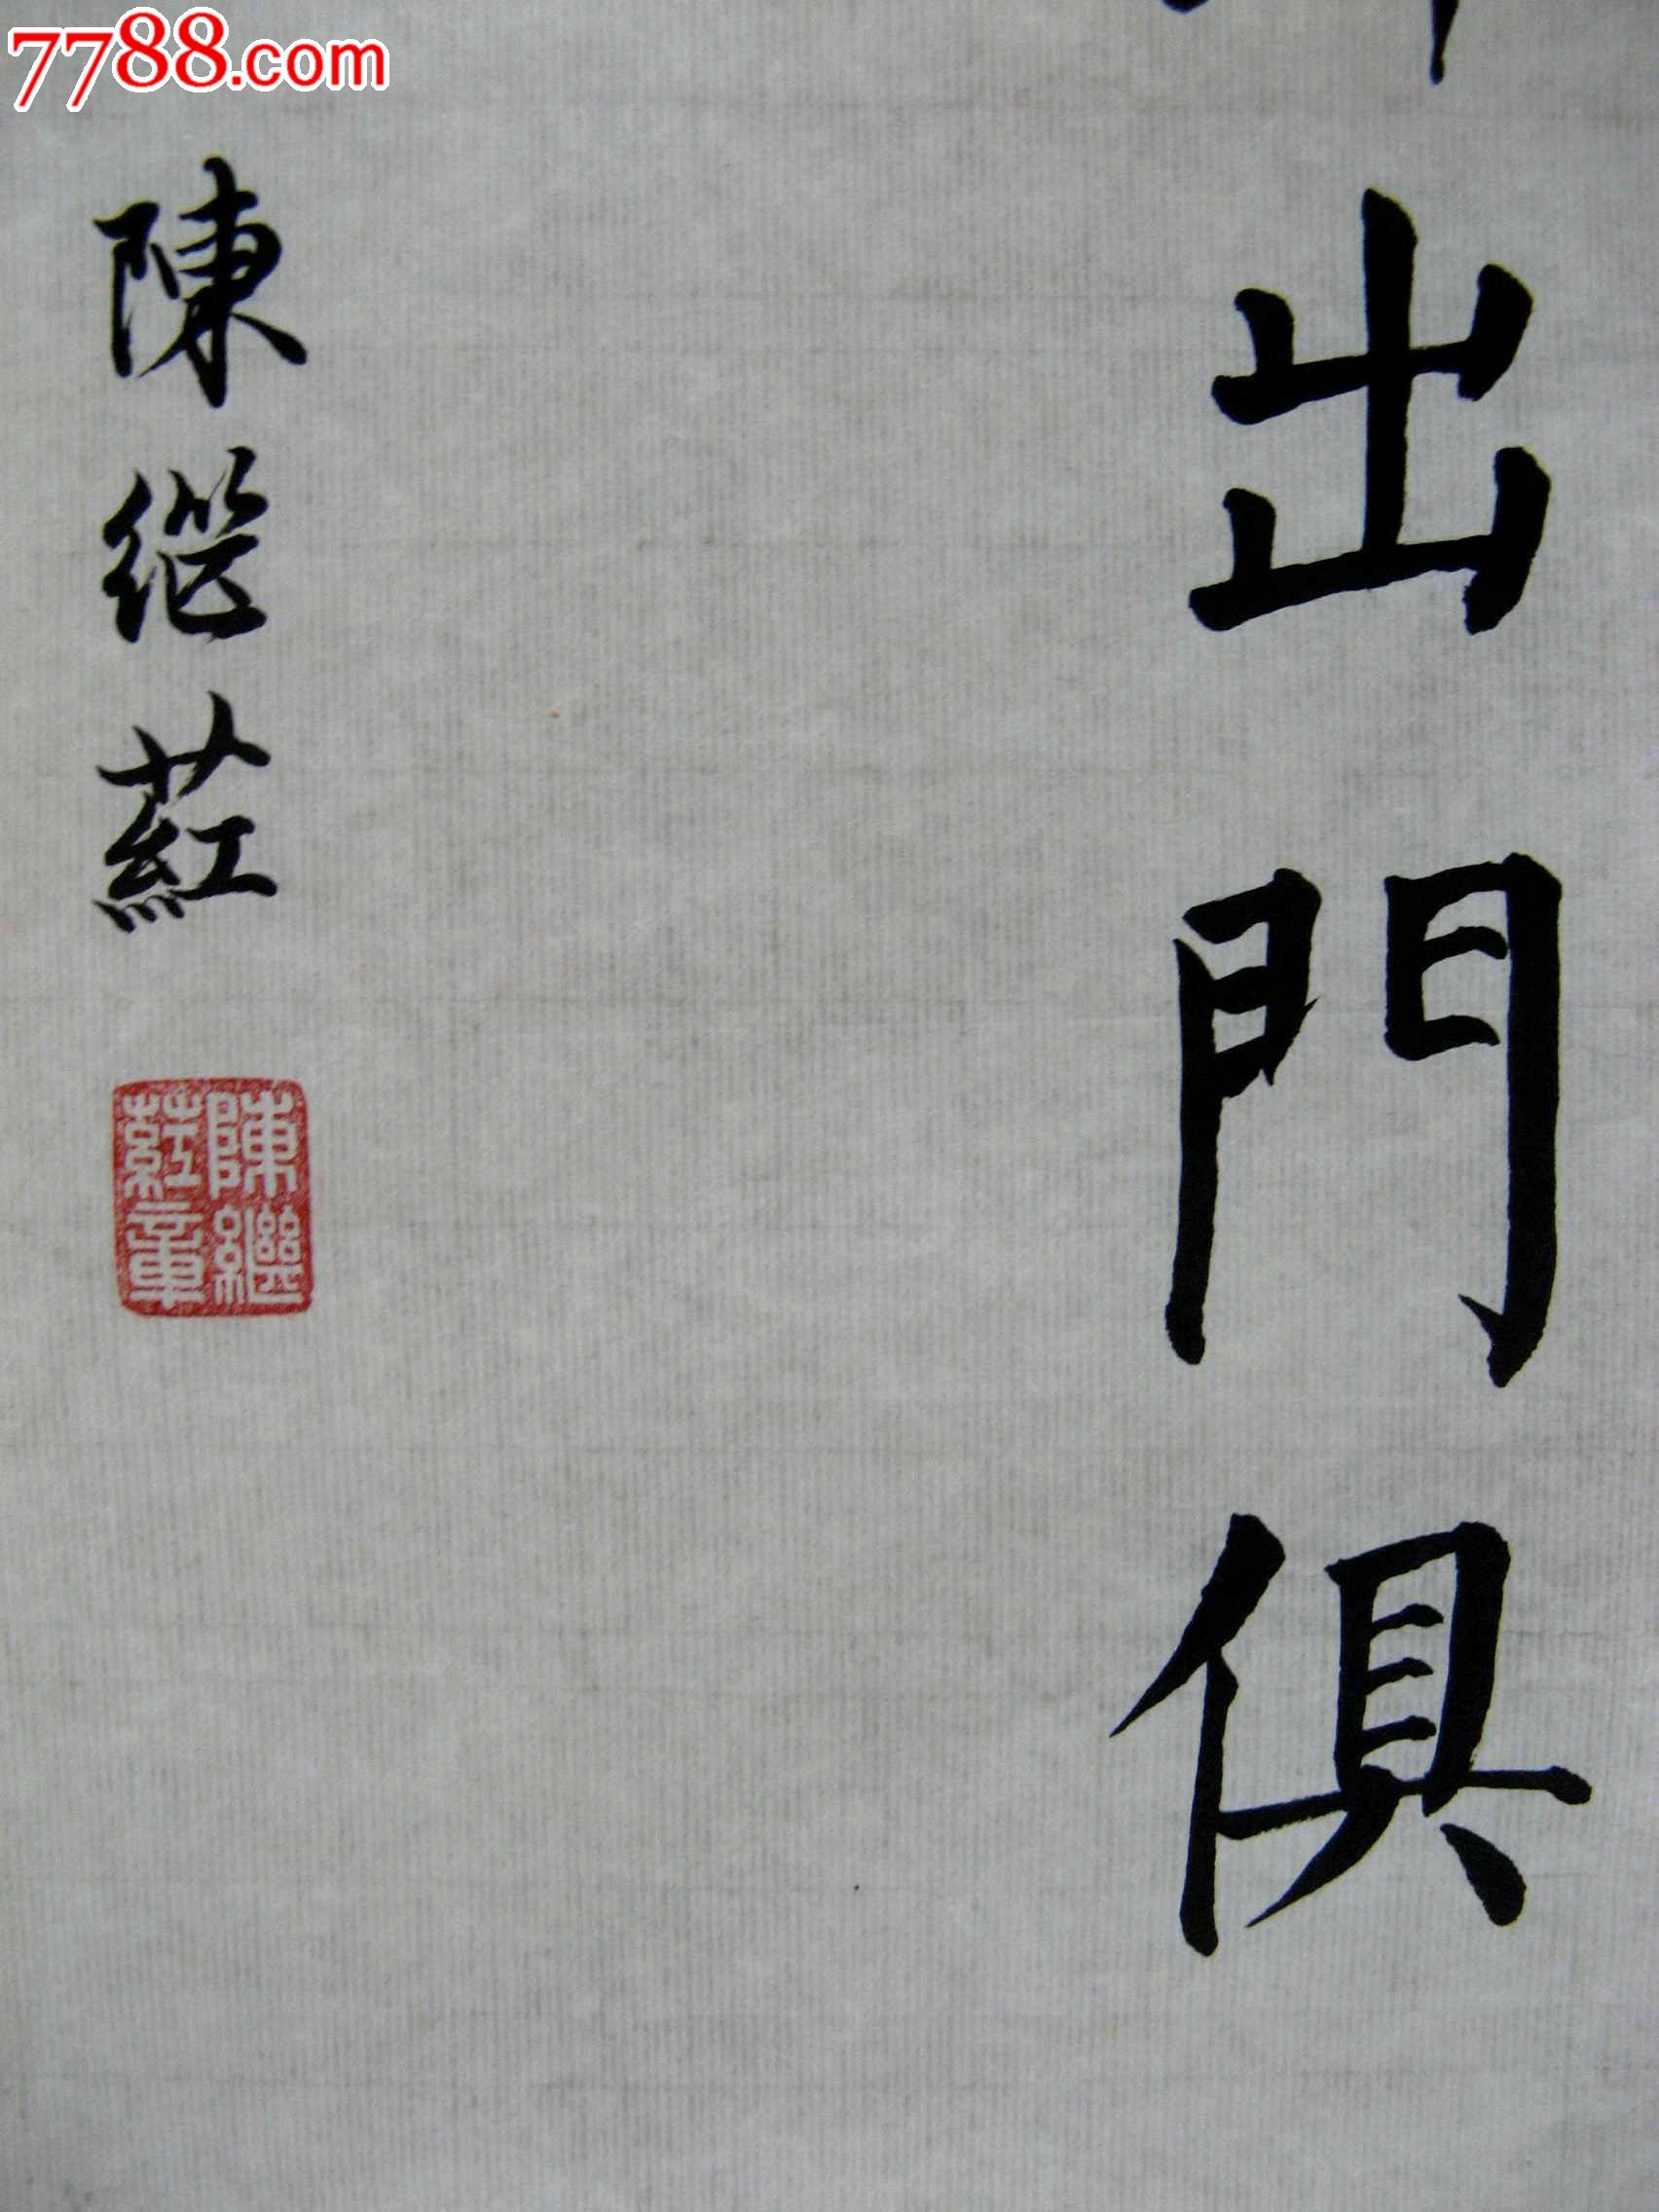 7788.com
出門俱
陳継葒
陳繼葒章